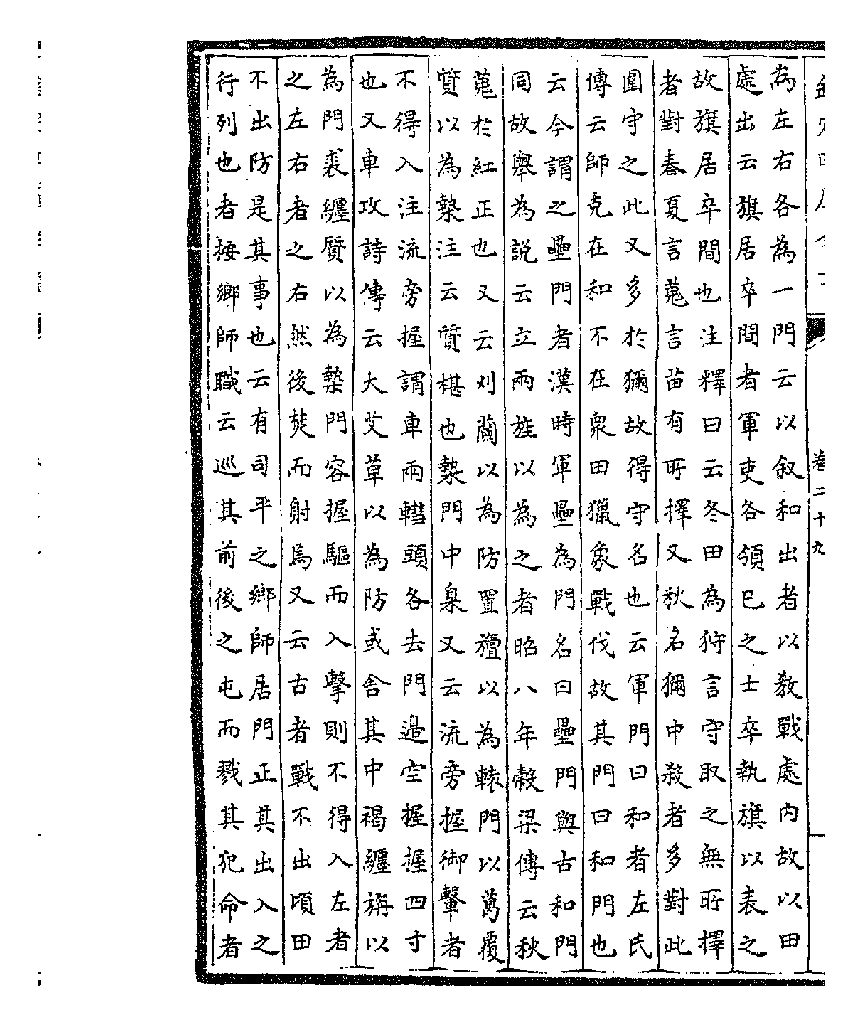 卷二十九
為左右各為一門云以叙和出者以教戰處内故以田
處出云旗居卒間者軍吏各領已之士卒執旗以表之
故旗居卒間也注釋曰云冬田為狩言守取之無所擇
者對春夏言蒐言苗有所擇又秋名獮中殺者多對此
圍守之此又多於獮故得守名也云軍門曰和者左氏
傳云師克在和不在衆田獵象戰伐故其門曰和門也
云今謂之壘門者漢時軍壘為門名曰壘門與古和門
同故舉為説云立兩旌以為之者昭八年榖梁傳云秋
蒐於紅正也又云刈蘭以為防置旜以為轅門以葛覆
質以為槷注云質椹也槷門中臬又云流旁握御轚者
不得入注流旁握謂車兩轊頭各去門邉空握握四寸
也又車攻詩傳云大艾草以為防或舍其中褐纒旃以
為門裘纒質以為槷門容握驅而入擊則不得入左者
之左右者之右然後焚而射焉又云古者戰不出頃田
不出防是其事也云有司平之鄉師居門正其出入之
行列也者按鄉師職云巡其前後之屯而戮其犯命者